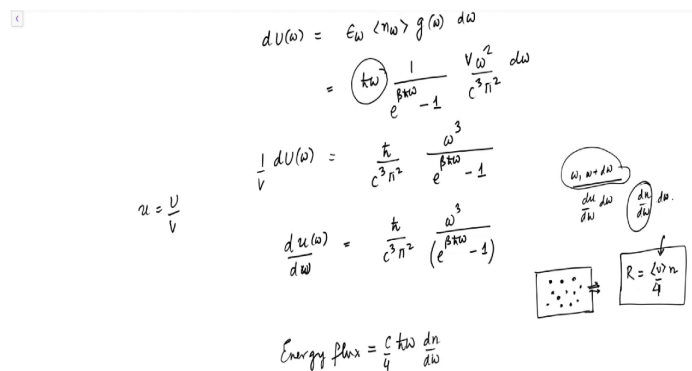 dU(ω) = ϵω <nω> g(ω) dω
= ħω 1/(e^{βħω} - 1) Vω²/(c³π²) dω
1/V dU(ω) = ħ/(c³π²) ω³/(e^{βħω} - 1)
u = U/V
du(ω)/dω = ħ/(c³π²) ω³/(e^{βħω} - 1)
ω, ω + dω
du/dω dω
dn/dω dω.
R = <v>n/4
Energy flux = c/4 ħω dn/dω